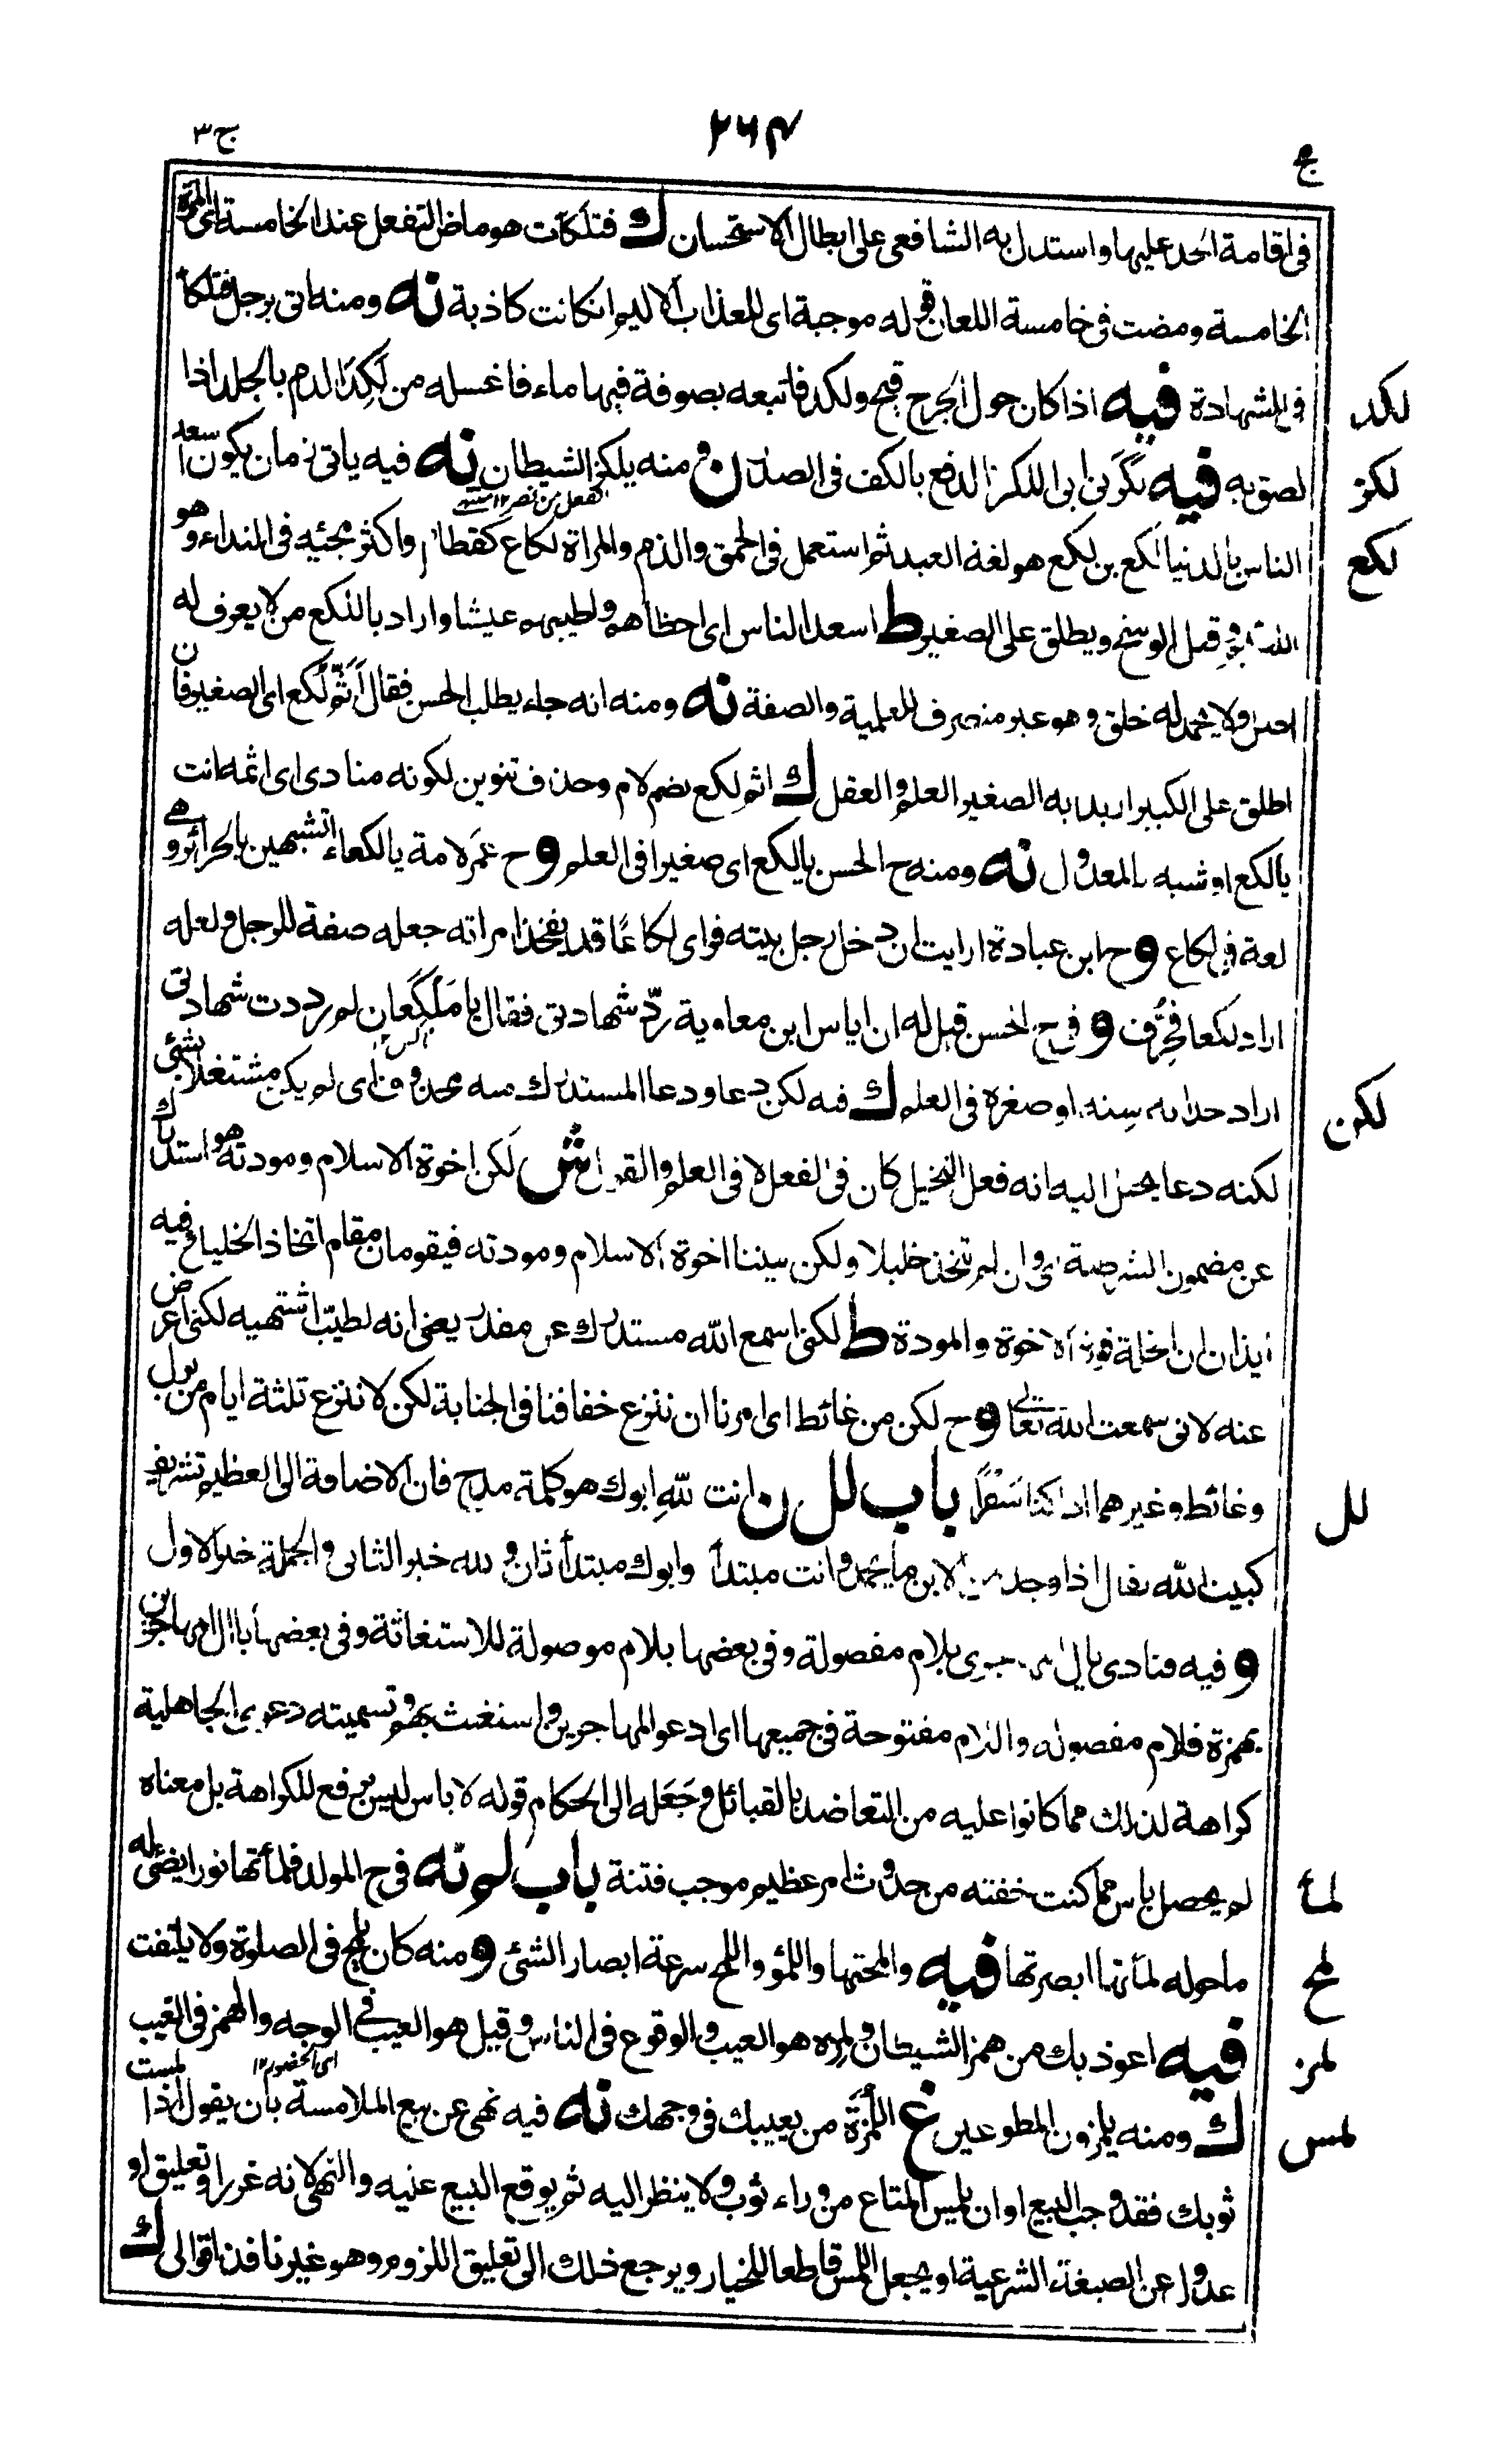 ج ٢٦٤ ج٣
فى اقامة الحد عليها واستدل به الشافعى على ابطال الاستحسان ك فتلكأت هو ماض التفعل عند الخامسة اى المرة
الخامسة ومضت فى خامسة اللعان قوله موجبة اى للعذاب الاليم ان كانت كاذبة نه ومنه اتى برجل فتلكأ
لكد فى الشهادة فيه اذا كان حول الجرح قيح ولكد فاتبعه بصوفة فيها ماء فاغسله من لكد الدم بالجلد اذا
لكز لصق به فيه لكزنى ابى اللكز الدفع بالكف فى الصدر ن ومنه يلكز الشيطان نه فيه ياتى زمان يكون اسعد
الفعل من نصر ١٢ منه
لكع الناس بالدنيا لكع بن لكع هو لغة العبد ثم استعمل فى الحمق والذم والمراة لكاع كقطام واكثر مجئيه فى النداء وهو
وقيل الوسخ ويطلق على الصغير ط اسعد الناس اى احظاهم واطيبهم عيشا واراد باللكع من لا يعرف له
اصل ولا يحمد له خلق وهو غير منصرف للعلمية والصفة نه ومنه انه جاء يطلب الحسن فقال أثم لكع اى الصغير فان
اطلق على الكبير اريد به الصغير العلم والعقل ك اثم لكع بضم لام وحذف تنوين لكونه منادى اى اثمه انت
يالكع او شبه بالمعدول نه ومنه ح الحسن يالكع اى صغيرا فى العلم و ح عمر لامة يالكعاء اتشبهين بالحرائر وهى
لغة فى لكاع و ح ابن عبادة ارايت ان دخل رجل بيته فراى لكاعا قد يفخذ امراته جعله صفة للرجل ولعله
اراد لكعا فحرف و فى ح الحسن قيل له ان اياس ابن معاوية رد شهادتى فقال يا ملكعان لم رددت شهادتى
لكن اراد حداثة سنه او صغره فى العلم ك فيه لكن دعا ودعا المستدرك منه محذوف اى لم يكن مشتغلا بشئ
لكنه دعا يخيل اليه انه فعل التخيل كان فى الفعل لا فى العلم و ش لكن اخوة الاسلام ومودته هو استدراك
عن مضمون الشرطية اى وان لم تتخذ خليلا ولكن بيننا اخوة الاسلام ومودته فيقومان مقام اتخاذ الخليل وفيه
ايذان ان الخلة فوق الاخوة والمودة ط لكنى اسمع الله مستدرك عن مقدر يعنى انه لطيب اشتهيه لكنى اعرض
عنه لانى سمعت الله تعالى و ح لكن من غائط اى امرنا ان ننزع خفافنا فى الجنابة لكن لا ننزع ثلثة ايام من بول
لل وغائط وغيرهما اذا كنا سفرا باب لل ن انت لله ابوك هو كلمة مدح فان الاضافة الى العظيم تشريف
كبيت الله يقال اذا وجد من الابن ما يحمد وانت مبتدأ وابوك مبتدأ ثان ولله خبر الثانى والجملة خبر الاول
و فيه فنادى بلام مفصولة وفى بعضها بلام موصولة للاستغاثة وفى بعضها ياال المهاجرين
بهمزة فلام مفصولة واللام مفتوحة فى جميعها اى ادعو المهاجرين واستغيث بهم وتسميته دعوى الجاهلية
كراهة لذلك مما كانوا عليه من التعاضد بالقبائل وجعله الى الحكام قوله لا باس ليس برفع للكراهة بل معناه
لمأ لم يحصل باس مما كنت خفته من حدوث امر عظيم موجب فتنة باب لم نه فى ح المولد فلمأتها نورا يضئ له
لمح ما حوله لمأتها ابصرتها فيه والمحتها واللمؤ واللمح سرعة ابصار الشئ و منه كان يلمح فى الصلوة ولا يلتفت
لمز فيه اعوذ بك من همز الشيطان ولمزه هو العيب والوقوع فى الناس وقيل هو العيب فى الوجه والهمز فى الغيب
اى الحضور ١٢
لمس ك ومنه يلمزون المطوعين غ اللمزة من يعيبك فى وجهك نه فيه نهى عن بيع الملامسة بان يقول اذا لمست
ثوبك فقد وجب البيع او ان يلمس المتاع من وراء ثوب ولا ينظر اليه ثم يوقع البيع عليه والنهى لانه غرر او تعليق او
عدول عن الصيغة الشرعية او يجعل اللمس قاطعا للخيار ويرجع ذلك الى تعليق اللزوم وهو غير نافذ اقوال ك